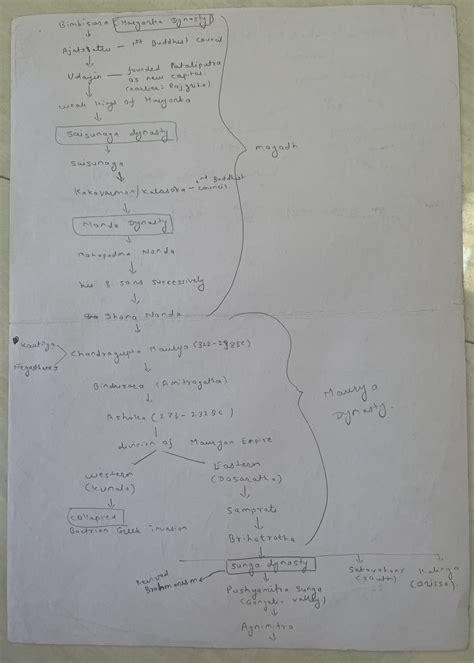 Bimbisara Haryanka Dynasty
Ajatsatru — 1st Buddhist Council
Udayin — founded Pataliputra
as new capital.
(earlier: Rajgriha)
weak kings of Haryanka
Saisunaga dynasty
Saisunaga
Kakavarman/Kalasoka — 2nd Buddhist
council
Nanda Dynasty
Mahapadma Nanda
his 8 sons successively
Dhana Nanda
magadh
Kautilya
Chandragupta Maurya (322-298BC)
Bindusara (Amitragatha)
Ashoka (273-232BC)
division of Mauryan Empire
Maurya
Dynasty.
Western
(Kunala)
Eastern
(Dasaratha)
collapsed
Bactrian Greek invasion
Samprati
Brihatratha
Sunga dynasty
Satavahana
(South)
Kalinga
(Orissa)
Revived
Brahmanism
Pushyamitra Sunga
(Gangetic valley)
Agnimitra